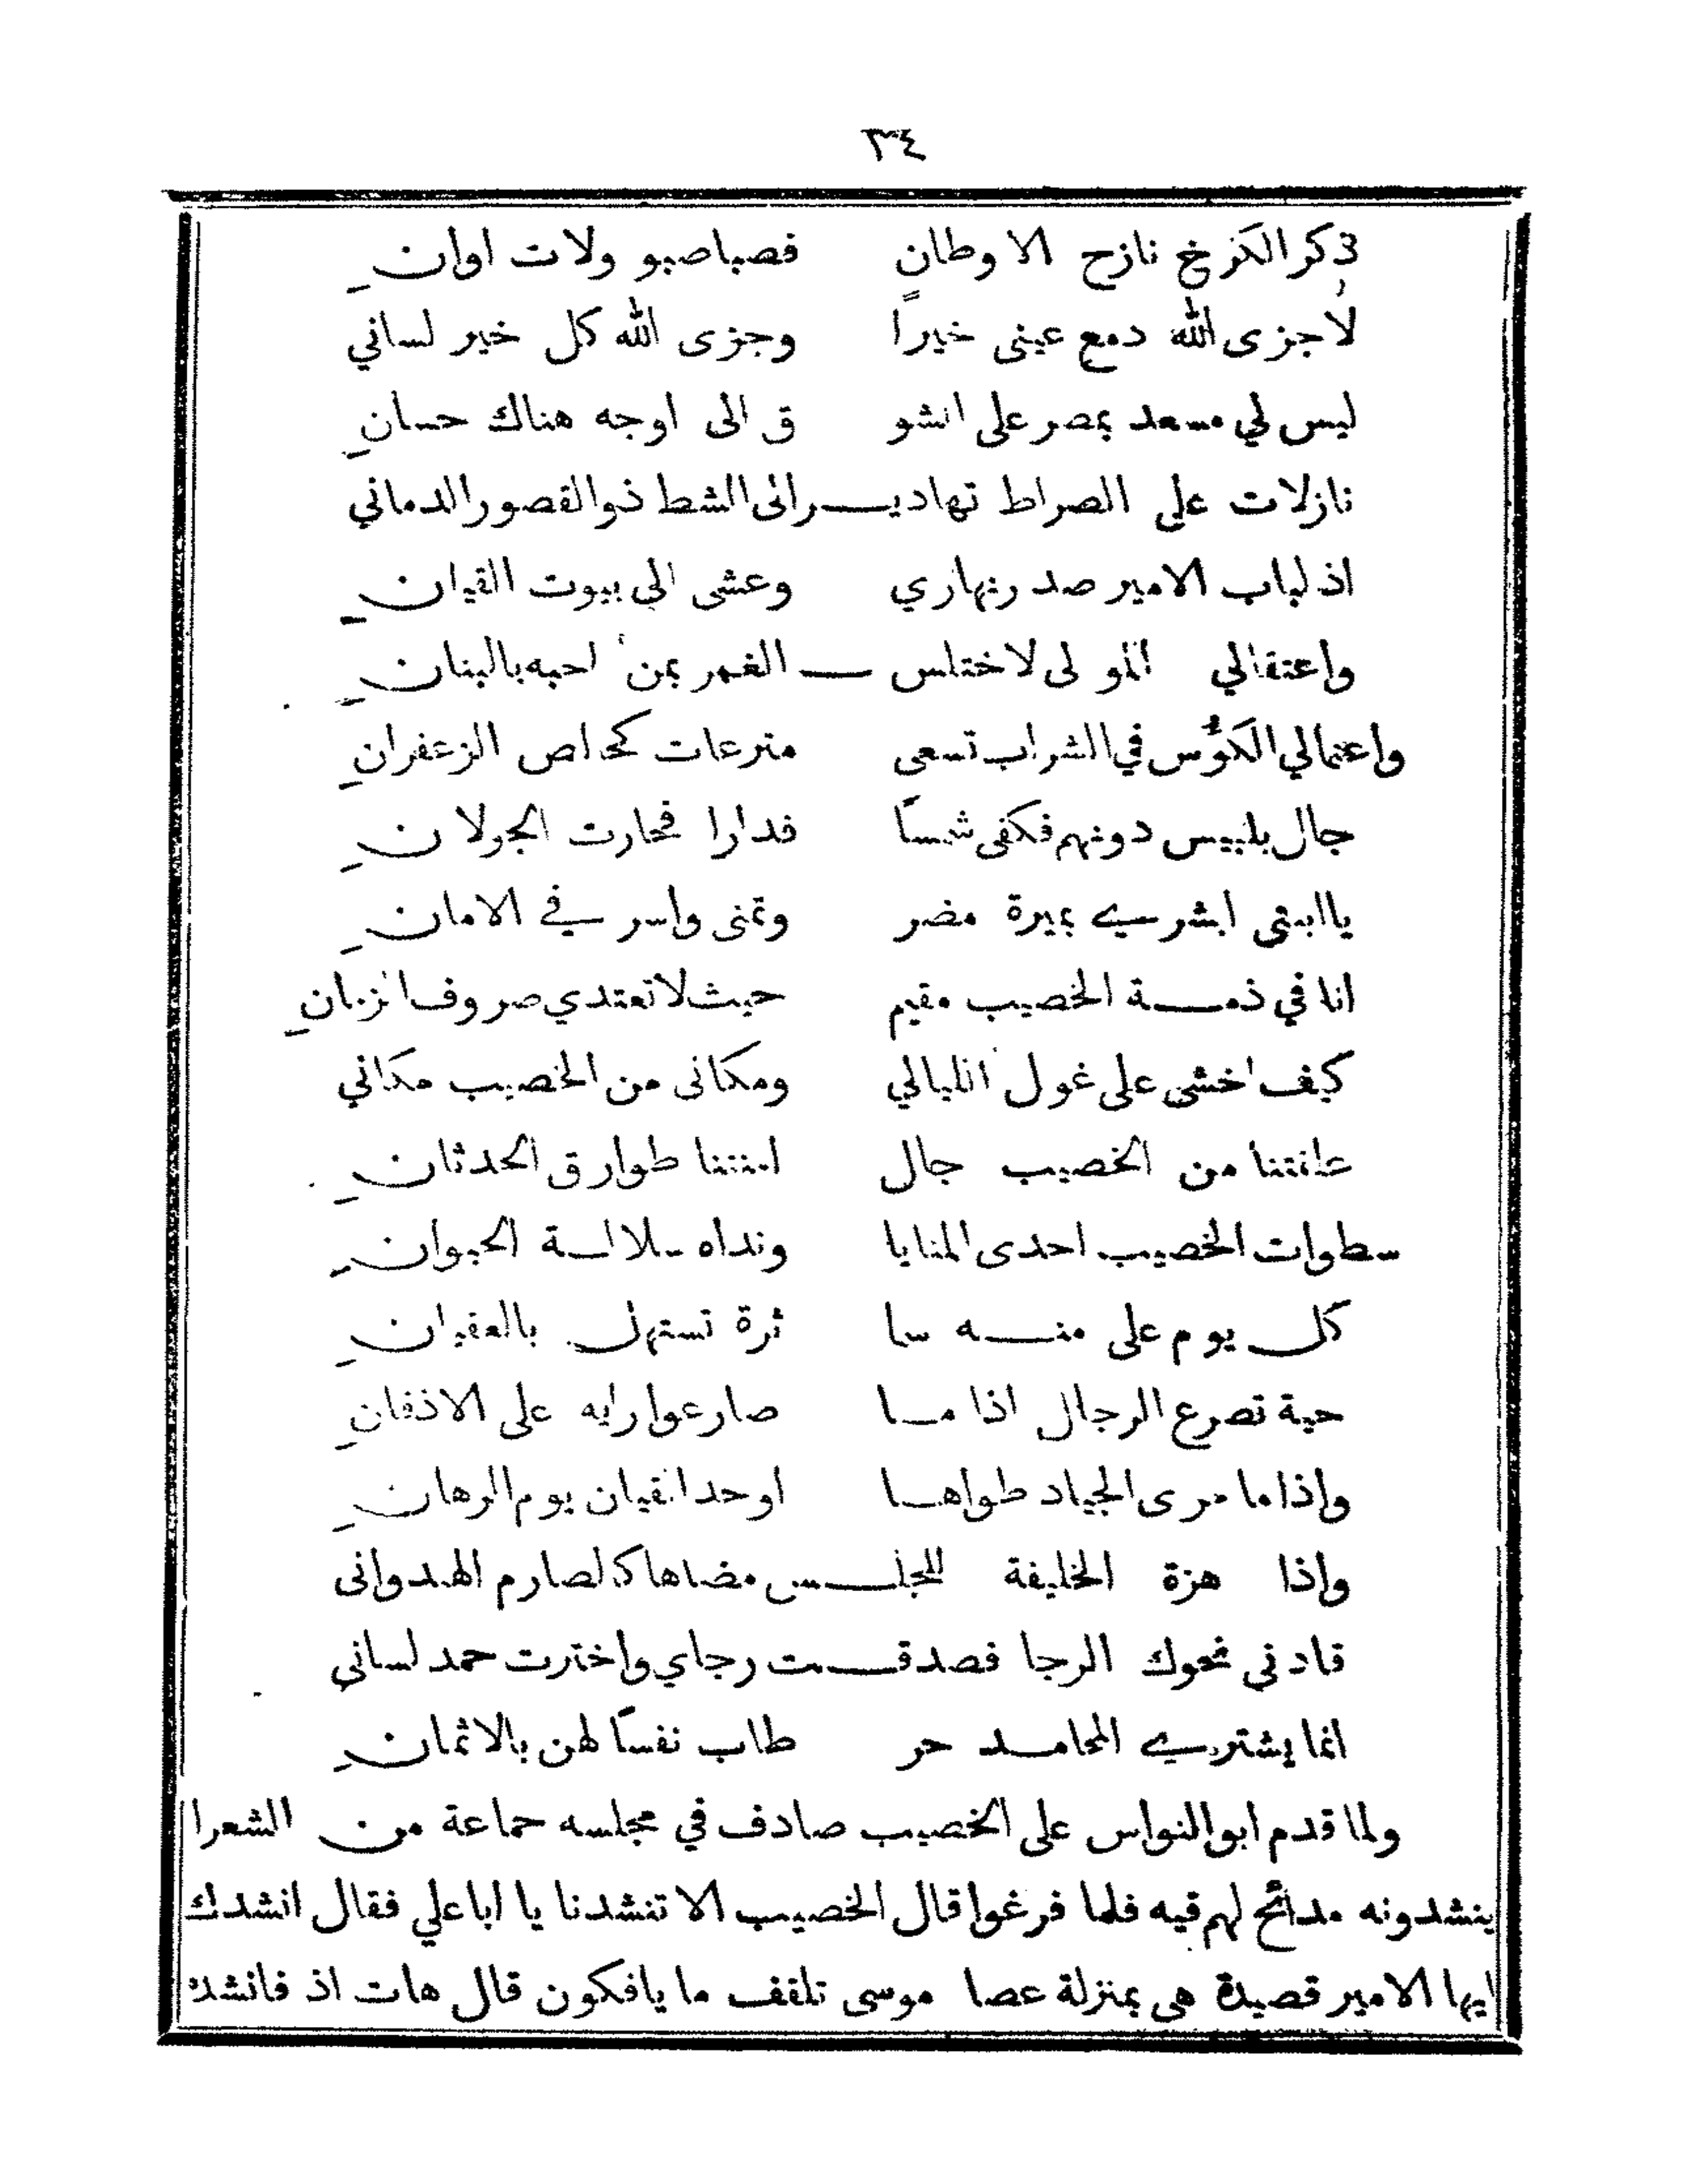 ٣٤
ذكر الكرخ نازح الاوطانِ فصباصبو ولات اوانِ
لاجزى الله دمع عينى خيراً وجزى الله كل خير لساني
ليس لي مسعد بمصر على الشو ق الى اوجه هناك حسانِ
نازلات على الصراط تهاديـــر الى الشط ذوالقصور الدماني
اذ لباب الامير صدر نهاري وعشى الى بيوت القيانِ
واعتقالي المولى لاختلس ـــ الغمر بمن احبه بالبنانِ
واعتمالي الكؤس في الشراب تسعى مترعات كخالص الزعفرانِ
جال بلبيس دونهم فكفى شمساً فدارا فحارت الجولانِ
ياابنى ابشري بميرة مضر وتمنى واسر في الامانِ
انا في ذمــة الخصيب مقيم حيث لاتعتدي صروف الزمانِ
كيف اخشى على غول الليالي ومكانى من الخصيب مكاني
علقتنا من الخصيب جال امنتنا طوارق الحدثانِ
سطوات الخصيب احدى المنايا ونداه سلالسة الحيوانِ
كل يوم على منـــه سما ثرة تستهل بالعقيانِ
حية تصرع الرجال اذا مــا صارعوا رايه على الاذقانِ
واذا ما جرى الجياد طواهــا اوحد القيان يوم الرهانِ
واذا هزة الخليفة للجلـــس مضاها كالصارم الهندوانى
قادني نحوك الرجا فصدقـــت رجاي واخترت حمد لسانى
انما يشتري المحامـد حر طاب نفساً لهن بالاثمانِ
ولما قدم ابوالنواس على الخصيب صادف في مجلسه جماعة من الشعرا
ينشدونه مدائح لهم قيه فلما فرغوا قال الخصيب الا تنشدنا يا اباعلي فقال انشدك
ايها الامير قصيدة هى بمنزلة عصا موسى تلقف ما يافكون قال هات اذ فانشد